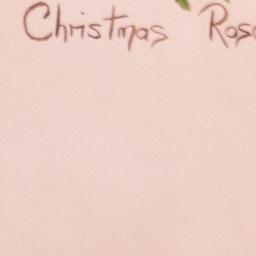 Christmas Ros